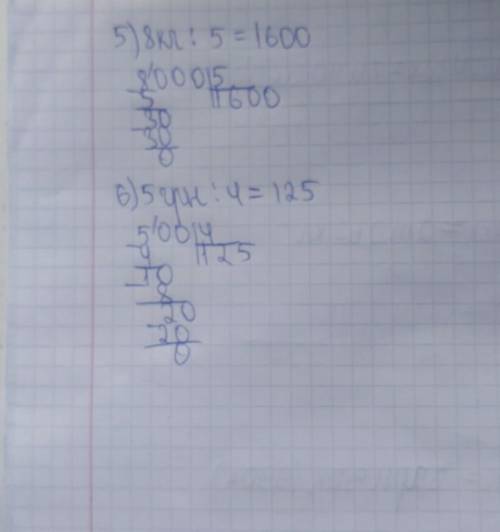 5) 8кг : 5 = 1600
8'000 | 5
5 | 1600
30
30
0
6) 5 грн : 4 = 125
5'00 | 4
4 | 125
10
8
20
20
0